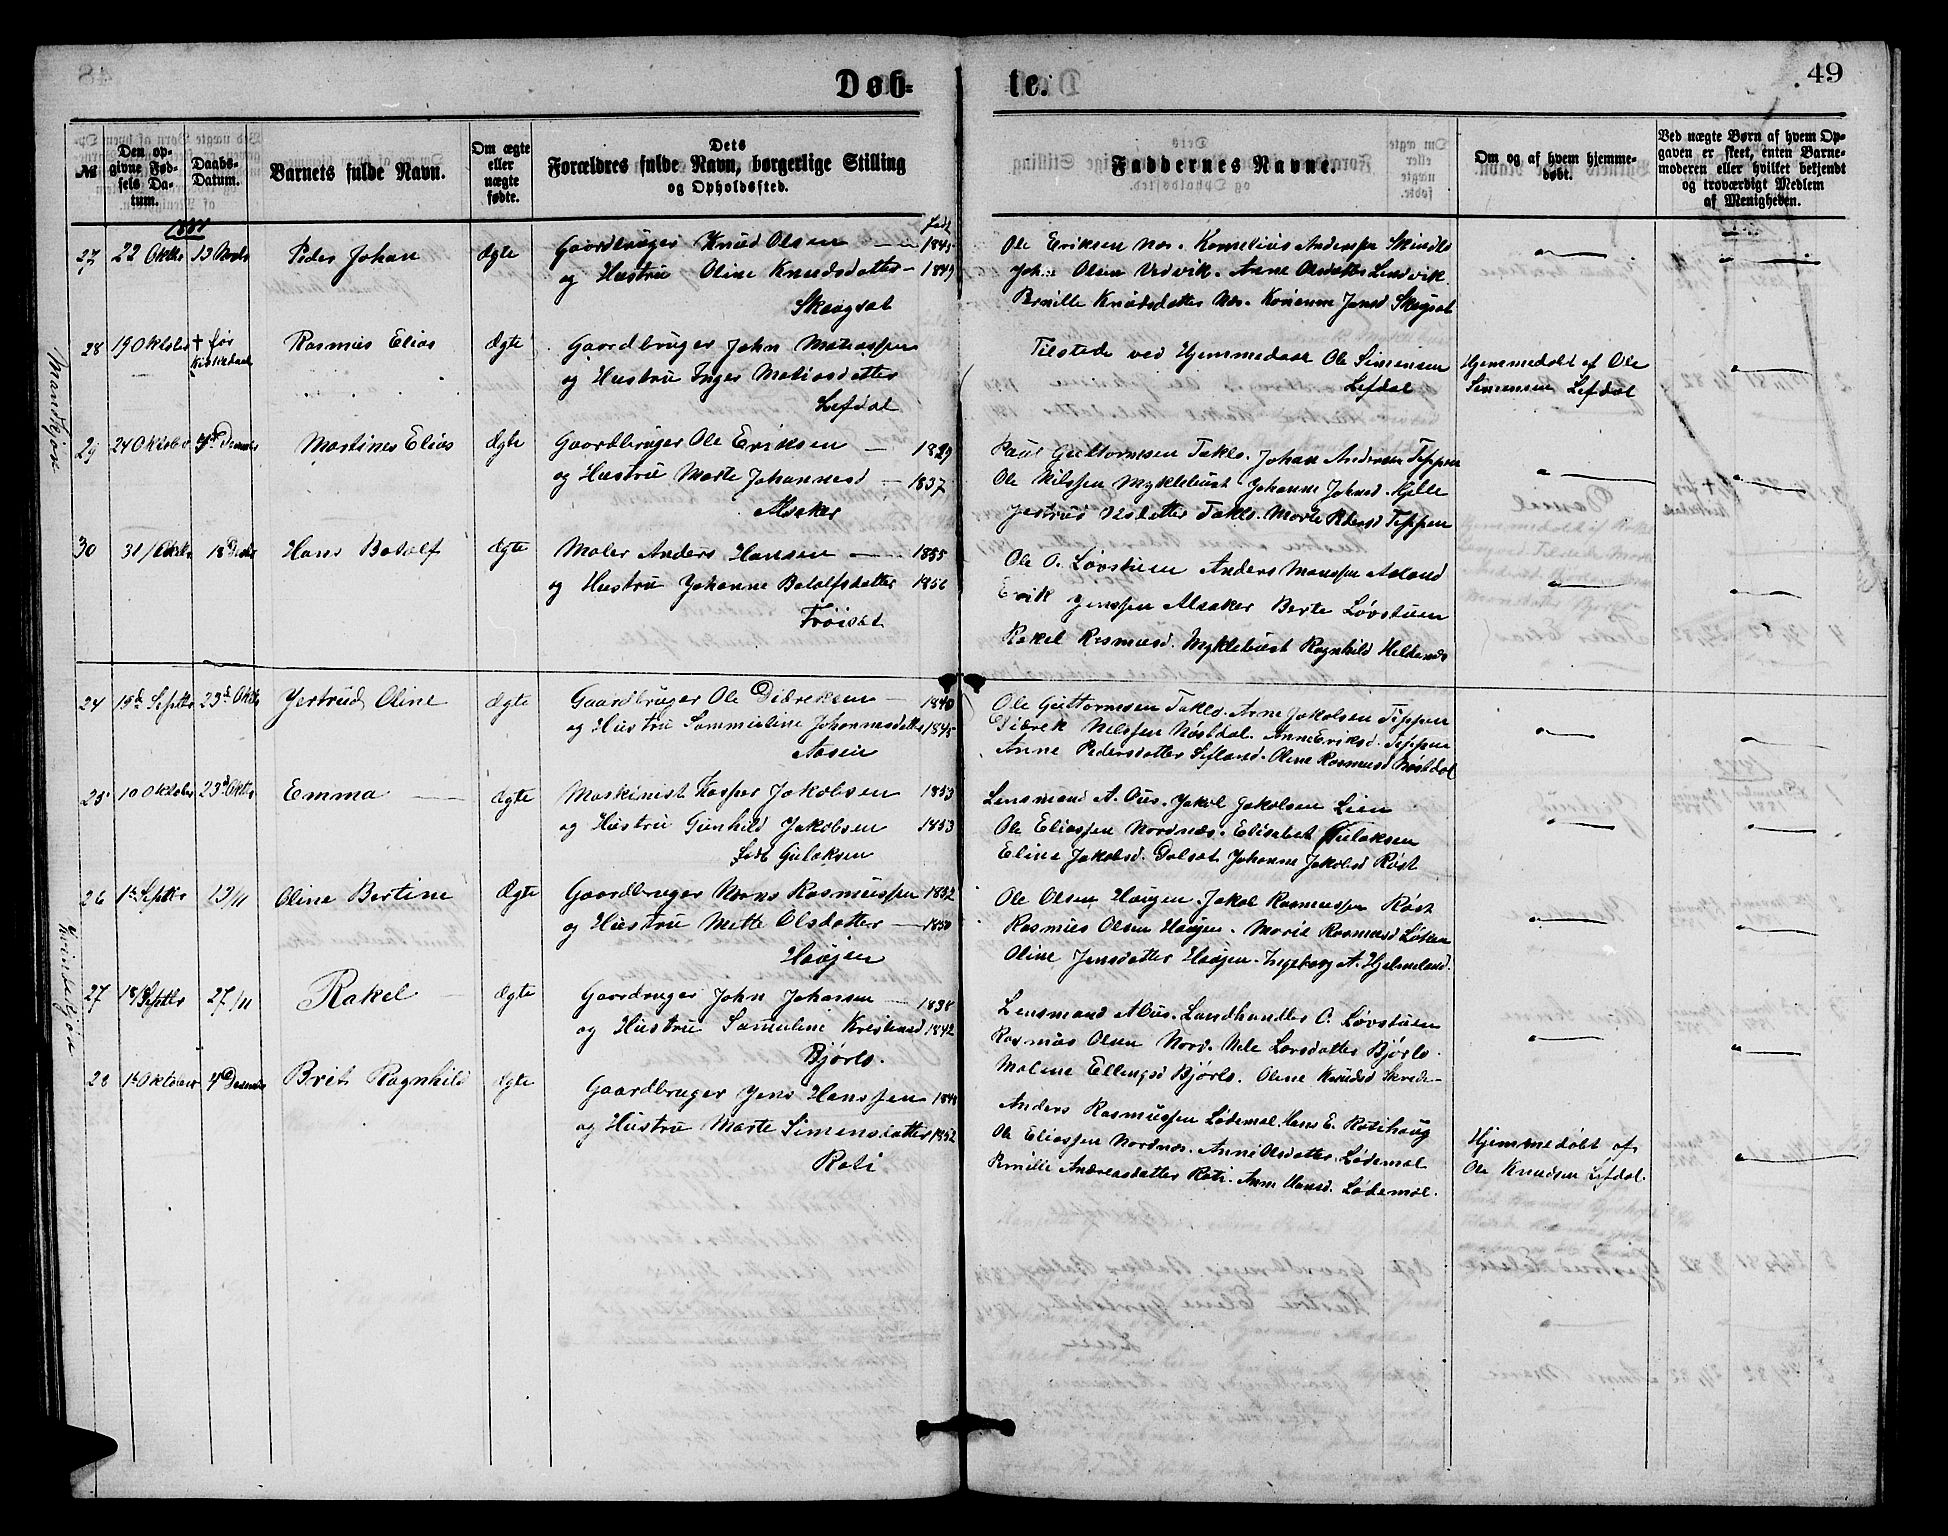 Døb-
te.
49
№
Den op-
givne Fød-
sels Da-
tum.
Daabs-
Datum.
Barnets fulde Navn.
Om ægte
eller
uægte
fødte.
Dets
Forældres fulde Navn, borgerlige Stilling
og Opholdssted.
Faddernes Navne.
Om og af hvem hjemme-
døbt.
Ved uægte Børn af hvem Op-
gaven er skeet, enten Barne-
moderen eller hvilket betjendt
og troværdigt Medlem
af Menigheden.
1881
Født
Mandkjøn
27 22 Oktbr 13 Novbr Peder Johan Ægte Gaardbruger Knud Olsen 1845
og Hustru Oline Knudsdatter 1849
Skaagsat
Ole Eriksen Nos. Kornelius Anderssen
Johan Olsen Vedvik. Anne Olsdatter Lendvik.
Pernille Knudsdatter Nos. Jensd Skogsat
28 19 Oktober † før Kirkedaab Rasmus Elias Ægte Gaardbruger John Matiassen
og Hustru Inger Matiasdatter
Lefdal
Tilstede ved Hjemmedaab Ole Simensen
Lefdal
Hjemmedøbt af Ole
Simensen Lefdal
29 24 Oktober 4de Decembr Martines Elias Ægte Gaardbruger Ole Eriksen 1829
og Hustru Marte Johannesd 1837
Alsaker
Paul Guttormsen Taklo. Johan Andersen Teppen
Ole Nilssen Myklebust Johanne Johnsd. Hjelle
Jertrud Olsdatter Taklo. Marte Pedersd Teppen
30 31/ Oktbr 18 Decbr Hans Botolf Ægte Maler Anders Hansen 1855
og Hustru Johanne Botolfsdatter 1856
Frøiset
Ole O. Løvstuen Anders Monssen Aaland
Erik Jenssen Alsaker Berte Løvstuen
Rakel Rasmusd. Myklebust Ragnhild Heldanes
Kvindekjøn
24 19de Septbr 23de Oktbr Jertrud Oline Ægte Gaardbruger Ole Didreksen 1840
og Hustru Sammueline Johannesdatter 1845
Aasen
Ole Guttormsen Taklo. Arne Jakobsen Teppen
Didrek Nilssen Nøstdal. Anne Eriksd. Teppen
Anne Pedersdatter Lefland. Oline Rasmusd Nøstdal
25 10 Oktober 23de Oktbr Emma Ægte Maskinist Kasper Jakobsen 1853
og Hustru Gunhild Jakobsen 1853
født Gulaksen
Lensmand A. Ous. Jakob Jakobsen Lien
Ole Eliassen Nordnæs. Elisabet Gulaksen
Eline Jakobsd. Dalsat Johanne Jakobsd Røst
26 1te Septbr 13/11 Oline Bertine Ægte Gaardbruger Mons Rasmussen 1832
og Hustru Mette Olsdatter 1850
Haugen
Ole Olsen Haugen. Jakob Rasmussen Røst
Rasmus Olsen Haugen. Marie Rasmusd Løken
Oline Jensdatter Haugen. Ingeborg A. Hjelmeland.
27 18/ Septbr 27/11 Rakel Ægte Gaardruger John Johansen 1838
og Hustru Samueline Kristensd 1842
Bjørlo.
Lensmand A Ous. Landhandler O. Løvstuen
Rasmus Olsen Nord. Nele Larsdatter Bjørlo.
Maline Ellingsd Bjørlo. Oline Knudsd Skrede
28 1te Oktober 4de Decembr Brit Ragnhild Ægte Gaardbruger Jens Hanssen 1848
og Hustru Marte Simensdatter 1852
Roti
Anders Rasmussen Lødemel. Hans E. Rotihaug
Ole Eliassen Nordnæs. Anne Olsdatter Lødemel
Pernille Andreasdatter Roti. Anne Hansd. Lødemel.
Hjemmedøbt af
Ole Knudsen Lefdal.